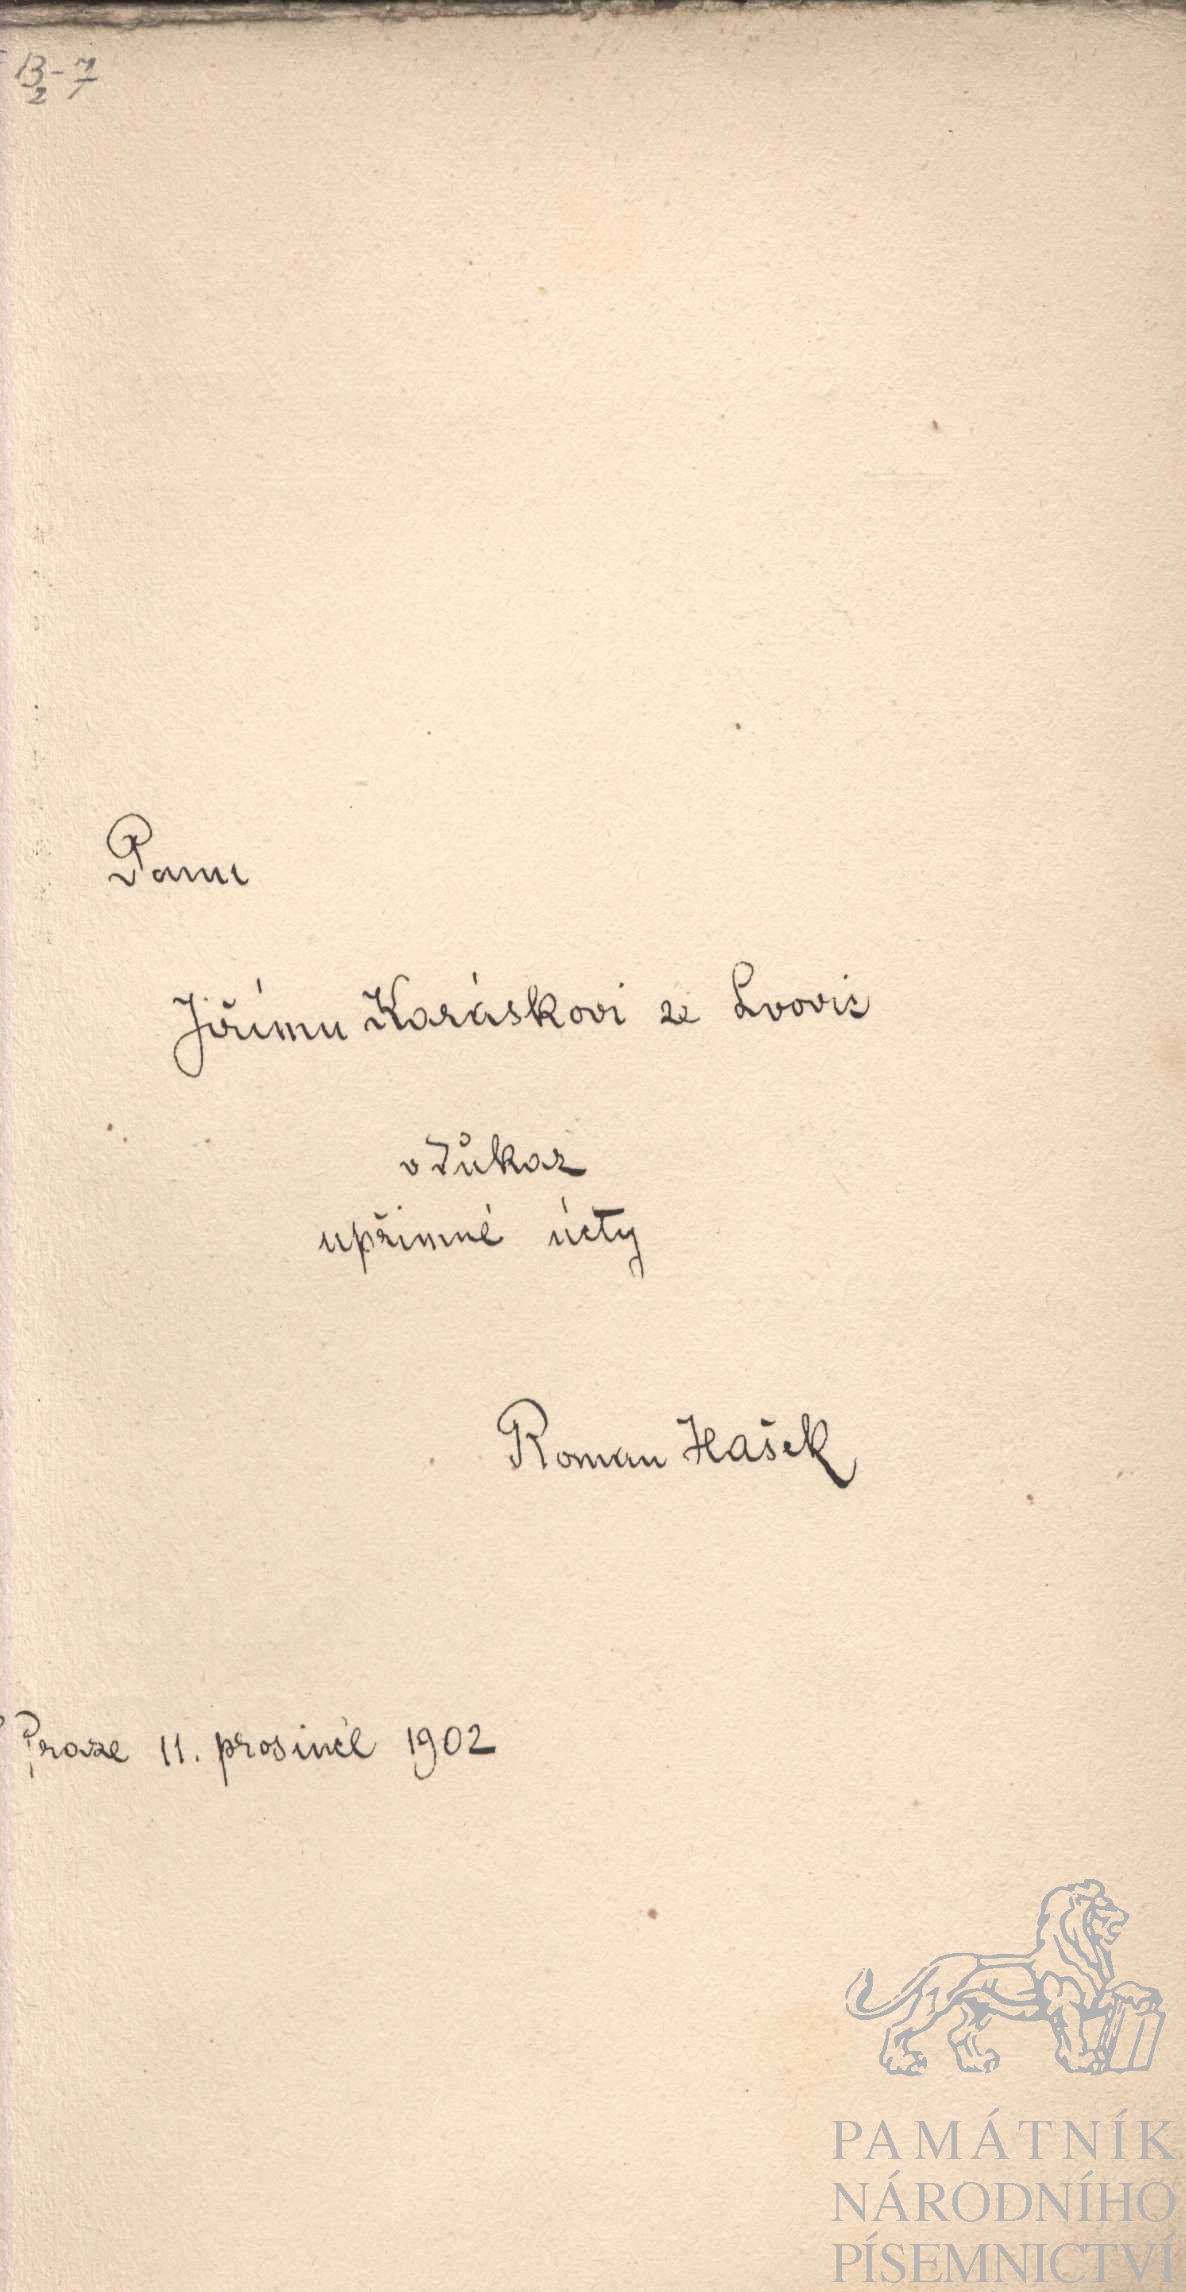 B2-7
Panu
Jiřímu Karáskovi ze Lvovic
v důkaz
upřimné úcty
Roman Hašek
Praze 11. prosince 1902
PAMÁTNÍK
NÁRODNÍHO
PÍSEMNICTVÍ